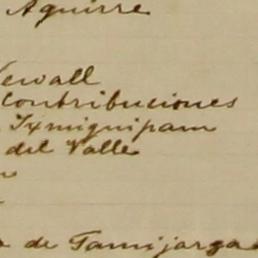 Aguirre
Newall
Contribuciones
Ixmiquipam
del Valle
de Tamijarga